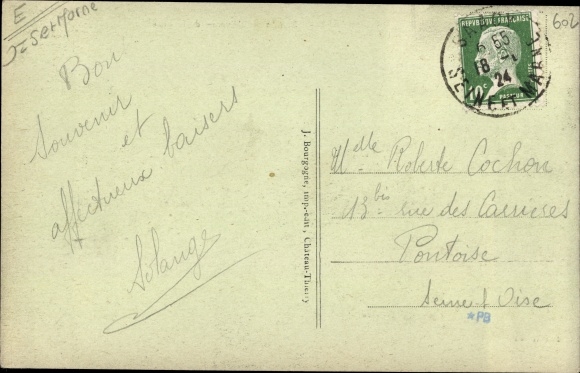 E
S-et-Marne
Bon
souvenir
et
affectueux baisers
Solange
J. Bourgogne, imp.-édit., Château-Thierry
REPUBLIQUE FRANÇAISE
10c
PASTEUR
POSTES
18
24
SEINE ET MARNE
602
Melle Roberte Cochon
13bis rue des Carrieres
Pontoise
Seine & Oise
*PB